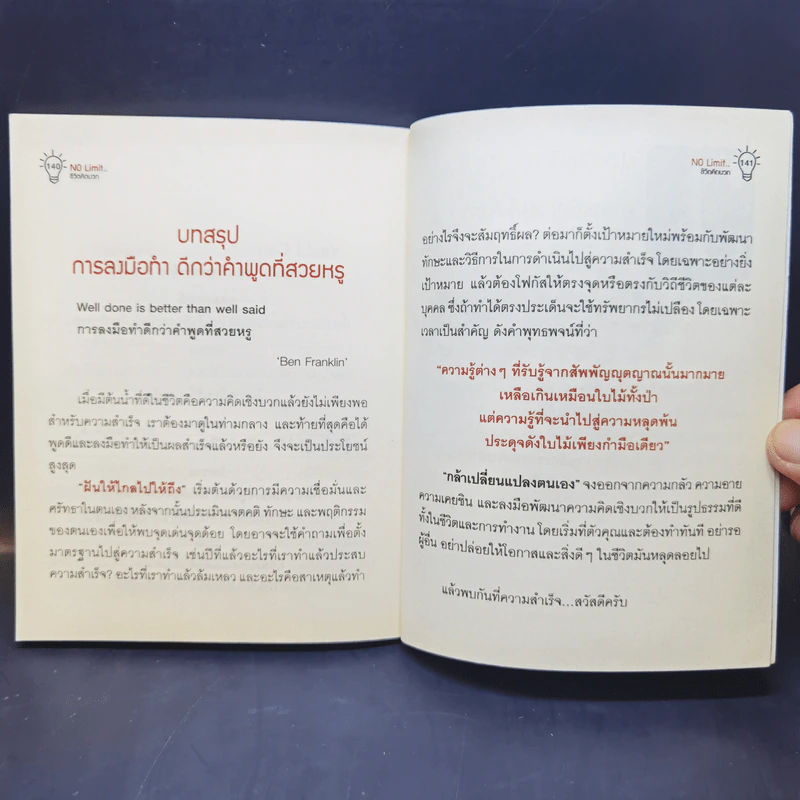 140
NO Limit..
ชีวิตคิดบวก
บทสรุป
การลงมือทำ ดีกว่าคำพูดที่สวยหรู
Well done is better than well said
การลงมือทำดีกว่าคำพูดที่สวยหรู
'Ben Franklin'
เมื่อมีต้นน้ำที่ดีในชีวิตคือความคิดเชิงบวกแล้วยังไม่เพียงพอ
สำหรับความสำเร็จ เราต้องมาดูในท่ามกลาง และท้ายที่สุดคือได้
พูดดีและลงมือทำให้เป็นผลสำเร็จแล้วหรือยัง จึงจะเป็นประโยชน์
สูงสุด
"ฝันให้ไกลไปให้ถึง" เริ่มต้นด้วยการมีความเชื่อมั่นและ
ศรัทธาในตนเอง หลังจากนั้นประเมินเจตคติ ทักษะ และพฤติกรรม
ของตนเองเพื่อให้พบจุดเด่นจุดด้อย โดยอาจจะใช้คำถามเพื่อตั้ง
มาตรฐานไปสู่ความสำเร็จ เช่นปีที่แล้วอะไรที่เราทำแล้วประสบ
ความสำเร็จ? อะไรที่เราทำแล้วล้มเหลว และอะไรคือสาเหตุแล้วทำ
NO Limit..
ชีวิตคิดบวก
141
อย่างไรจึงจะสัมฤทธิ์ผล? ต่อมาก็ตั้งเป้าหมายใหม่พร้อมกับพัฒนา
ทักษะและวิธีการในการดำเนินไปสู่ความสำเร็จ โดยเฉพาะอย่างยิ่ง
เป้าหมาย แล้วต้องโฟกัสให้ตรงจุดหรือตรงกับวิถีชีวิตของแต่ละ
บุคคล ซึ่งถ้าทำได้ตรงประเด็นจะใช้ทรัพยากรไม่เปลือง โดยเฉพาะ
เวลาเป็นสำคัญ ดังคำพุทธพจน์ที่ว่า
"ความรู้ต่างๆ ที่รับรู้จากสัพพัญญุตญาณนั้นมากมาย
เหลือเกินเหมือนใบไม้ทั้งป่า
แต่ความรู้ที่จะนำไปสู่ความหลุดพ้น
ประดุจดังใบไม้เพียงกำมือเดียว"
"กล้าเปลี่ยนแปลงตนเอง" จงออกจากความกลัว ความอาย
ความเคยชิน และลงมือพัฒนาความคิดเชิงบวกให้เป็นรูปธรรมที่ดี
ทั้งในชีวิตและการทำงาน โดยเริ่มที่ตัวคุณและต้องทำทันที อย่ารอ
ผู้อื่น อย่าปล่อยให้โอกาสและสิ่งดีๆ ในชีวิตมันหลุดลอยไป
แล้วพบกันที่ความสำเร็จ...สวัสดีครับ